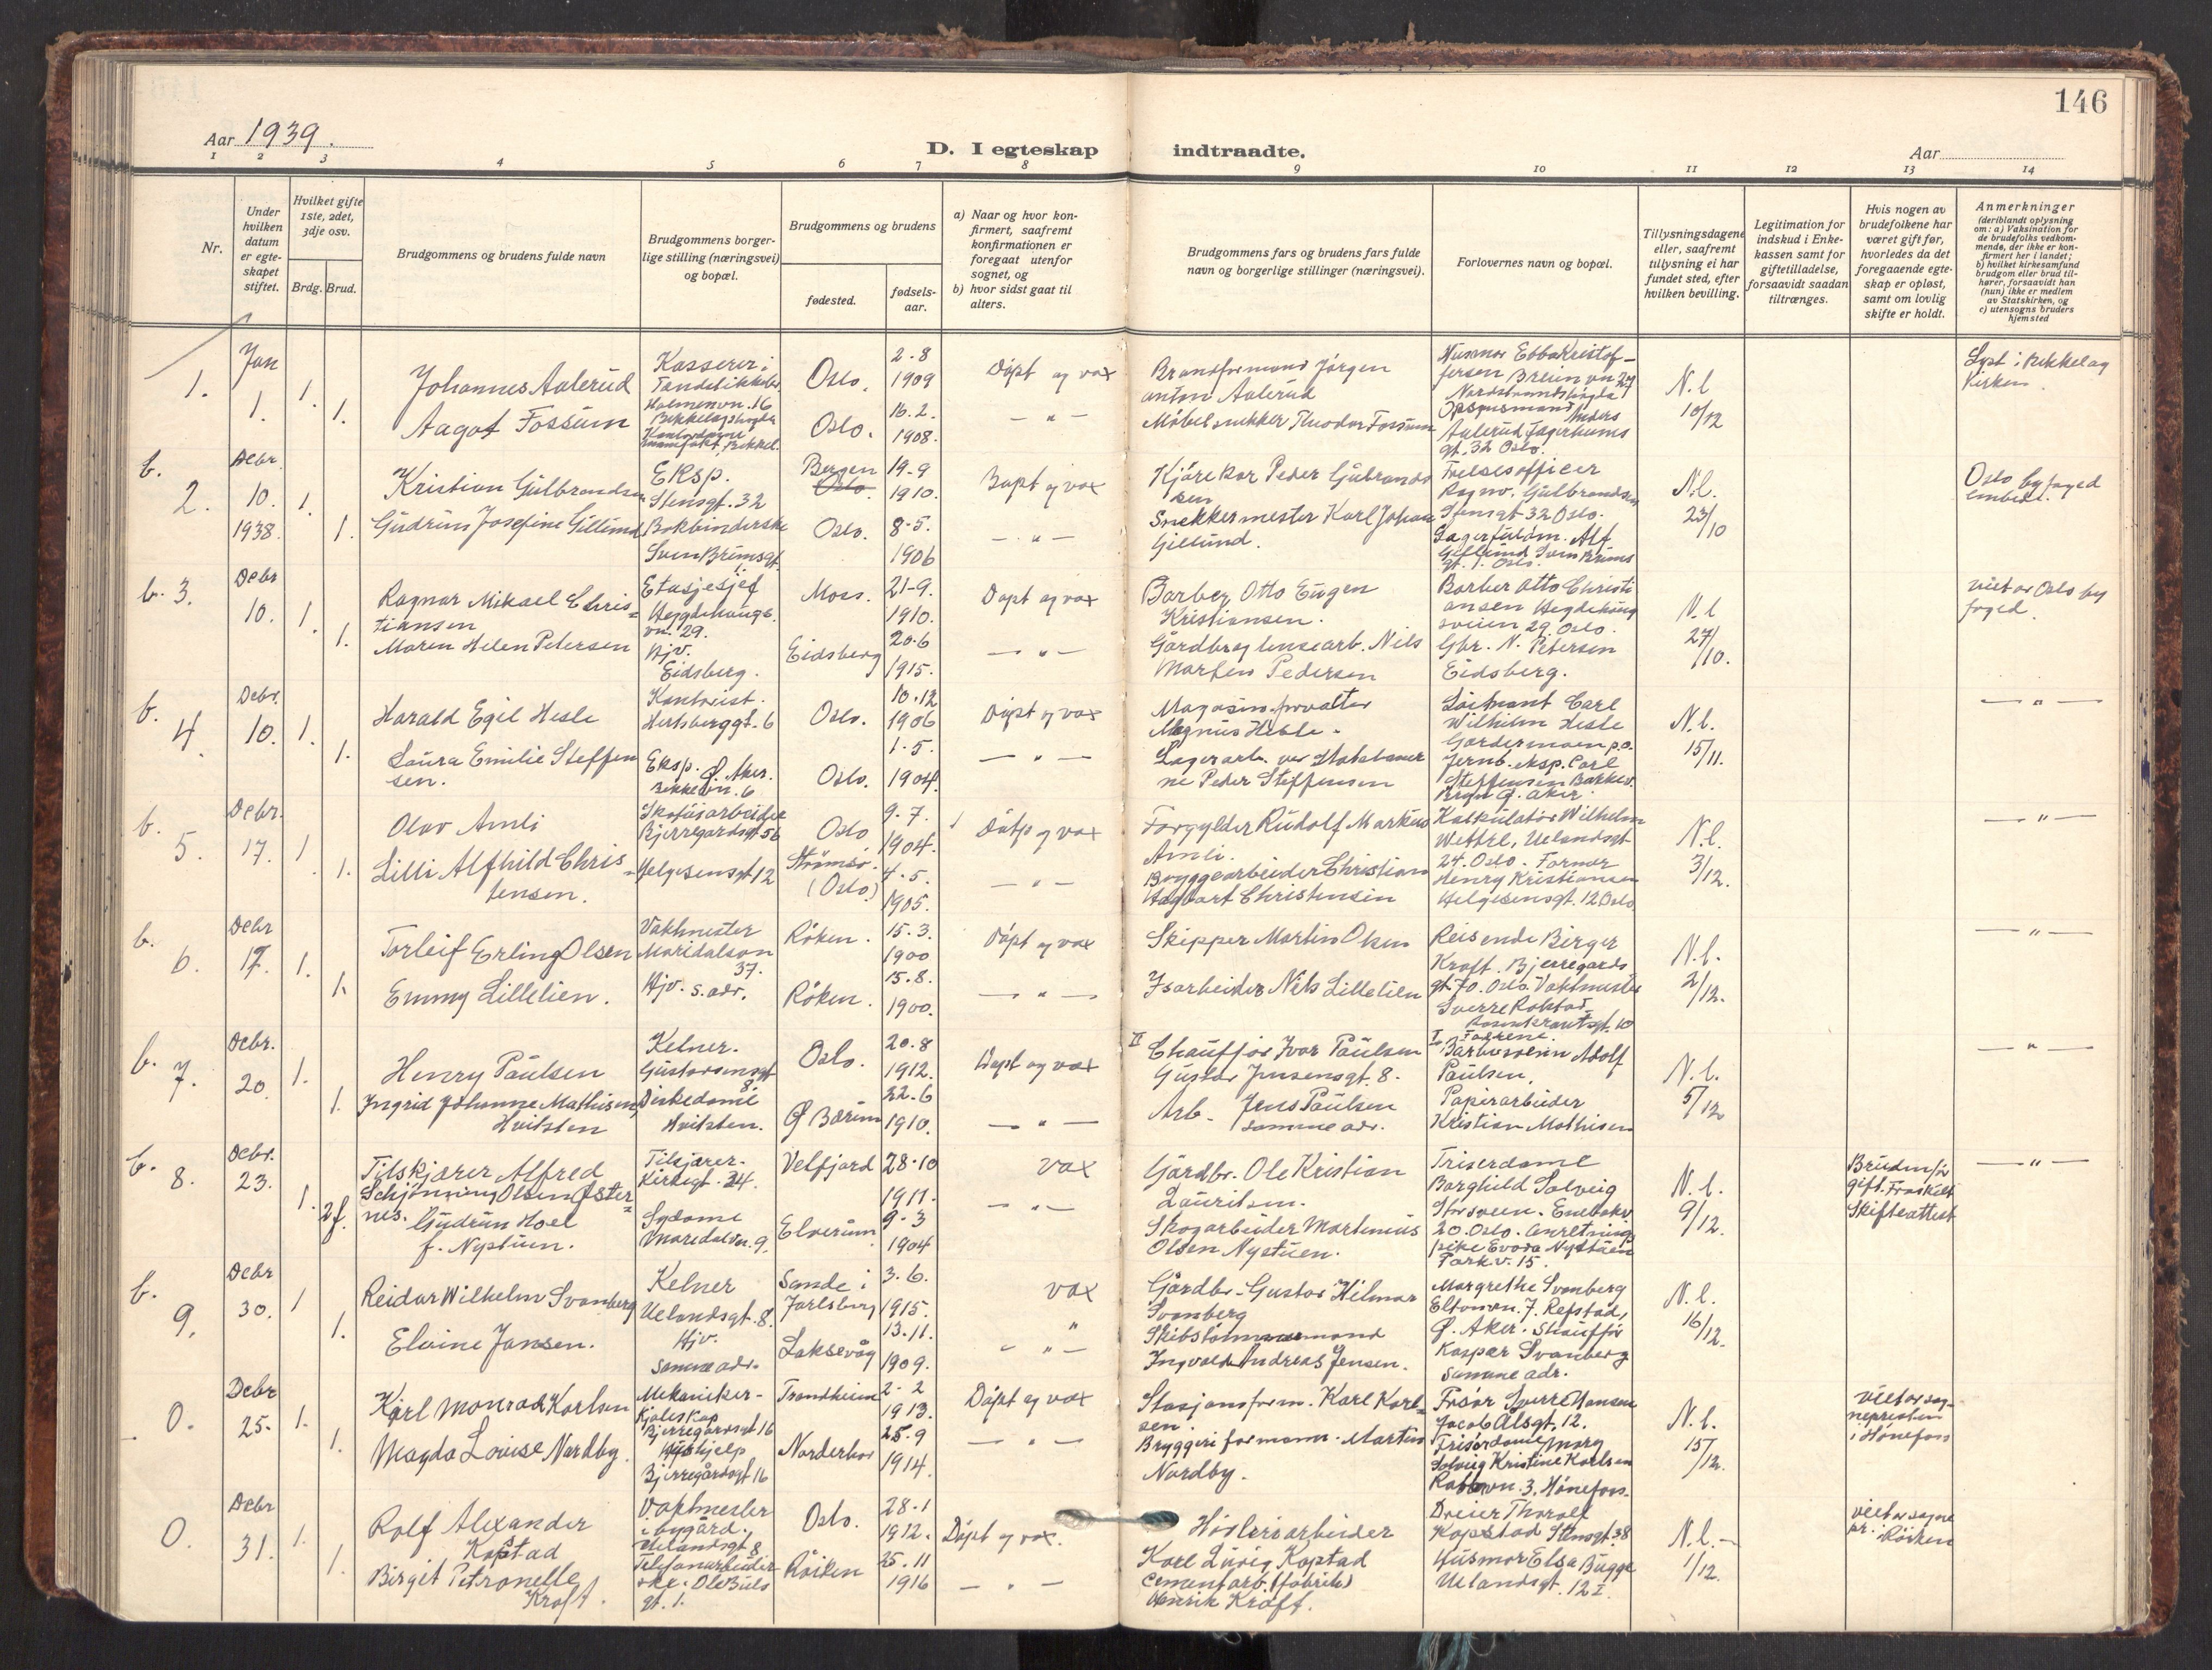 146
Aar 1939.
D. I egteskap indtraadte.
Aar
1 2 3 4 5 6 7 8 9 10 11 12 13 14
Nr.
Under hvilken datum er egteskapet stiftet.
Hvilket gifte 1ste, 2det, 3dje osv.
Brdg. Brud.
Brudgommens og brudens fulde navn
Brudgommens borgerlige stilling (næringsvei) og bopæl.
Brudgommens og brudens
fødested.
fødselsaar.
a) Naar og hvor konfirmert, saafremt konfirmationen er foregaat utenfor sognet, og
b) hvor sidst gaat til alters.
Brudgommens fars og brudens fars fulde navn og borgerlige stillinger (næringsvei).
Forlovernes navn og bopæl.
Tillysningsdagene eller, saafremt tillysning ei har fundet sted, efter hvilken bevilling.
Legitimation for indskud i Enkekassen samt for giftetilladelse, forsaavidt saadan tiltrænges.
Hvis nogen av brudefolkene har været gift før, hvorledes da det foregaaende egteskap er opløst, samt om lovlig skifte er holdt.
Anmerkninger
(deriblandt oplysning om: a) Vaksination for de brudefolks vedkommende, der ikke er konfirmert her i landet; b) hvilket kirkesamfund brudgom eller brud tilhører, forsaavidt han (hun) ikke er medlem av Statskirken, og c) utensogns bruders hjemsted
1. Jan 1. 1. 1.
Johannes Aalerud
Aagot Fossum
Kasserer i
Holmenvn. 16
Oslo. 2-8 1909
Oslo. 16.2. 1908.
Døpt og vax
— " —
Brandformand Jørgen
Anton Aalerud
Møbelsnekker Theodor Fossum
Opsynsmand Anders
Aalerud Jagerhums
gt. 32 Oslo.
N.l. 10/12
Lyst i Bekkelag
kirken
b. 2. Debr. 10. 1938. 1. 1.
Kristian Gulbrandsen
Gudrun Josefine Gillund
Eksp.
Stensgt. 32
Bokbinderske
Sven Brunsgt. 1.
Bergen
Oslo.
19-9 1910.
Oslo. 8-5. 1906
Døpt og vax
— " —
Kjørekar Peder Gulbrand
sen
Snekkermester Karl Johan
Gillund.
Frelsesofficer
Ragnv. Gulbrandsen
Stensgt 32 Oslo.
Lagerfuldm. Alf
Gillund Sven Bruns
gt. 1. Oslo.
N.l. 23/10
Oslo byfoged
embede.
b. 3. Debr 10. 1. 1.
Ragnar Mikael Chris=
tiansen
Maren Helen Petersen
Etasjesjef
Hegdehaugs
vn. 29.
Hjv.
Eidsberg.
Moss. 21-9. 1910.
Eidsberg 20-6 1915.
Døpt og vax
— " —
Barber Otto Eugen
Kristiansen.
Gårdbr og tensearb. Nils
Marten Pedersen
Barber Otto Christi
ansen Hegdehaug
sveien 29. Oslo.
Gbr. N. Petersen
Eidsberg.
N.l 27/10.
viet av Oslo by
foged.
b. 4. Debr. 10. 1. 1.
Harald Egil Hesle
Laura Emilie Steffen
sen.
Kontorist.
Hertzberggt. 6
Eksp. Ø. Aker.
Bekkevn. 6
Oslo. 10.12 1906
Oslo. 1-5. 1904.
Døpt og vax
— " —
Magasinforvalter
Magnus Hesle.
Lagerarb. ver Statsbaner
ne Peder Steffensen
Løitnant Carl
Wilhelm Hesle
Gardermoen p.o.
Jernb. eksp. Carl
Steffensen Bakkev.
Bryn Ø. Aker
N.l. 15/11.
— " —
b. 5. Debr. 17. 1 1.
Olav Amli
Lilli Alfhild Chris
tensen.
Skotøiarbeider
Bjerregårdsgt 56
Helgesensgt 12
Oslo 9-7. 1904.
Strømsø.
(Oslo) 4-5. 1905.
Døpt og vax
— " —
Forgylder Rudolf Markus
Amli.
Bryggearbeider Christian
Hagbart Christensen
Kalkulatør Wilhelm
Wettrl, Uelandsgt
24. Oslo. Former
Henry Kristiansen
Helgesensgt. 12 Oslo
N.l. 3/12.
— " —
b. 6. Debr 17. 1. 1.
Torleif Erling Olsen
Emmy Lillelien.
Vaktmester
Maridalsvn
37.
Hjv. s. adr.
Røken. 15.3. 1900
Røken. 15.8. 1900.
Døpt og vax
— " —
Skipper Martin Olsen
Isarbeider Nils Lillelien
Reisende Birger
Kraft. Bjerregards
gt. 70. Oslo. Vaktmester
Sverre Rokstad
Rosenkrantsgt. 10
N.l. 2/12.
— " —
b. 7. Debr. 20. 1. 1.
Henry Paulsen
Ingrid Johanne Mathisen,
Hvitsten
Kelner.
Gustavsensgt
8.
Diskedame
Hvitsten.
Oslo. 20.8 1912.
Ø Bærum 22.6 1910.
Døpt og vax
— " —
II Chaufför Ivar Paulsen
Gustav Jensensgt. 8.
Arb. Jens Paulsen
samme adr.
I Fædrene.
Barbersvenn Adolf
Paulsen,
Papirarbeider
Kristian Mathisen
N.l. 5/12
— " —
b. 8. Debr. 23. 1. 2 f.
Tilskjærer Alfred
Schjønning Olsen Øster=
nes.
Gudrun Hoel
f. Nystuen.
Tilskjærer.
Kirkegt. 34.
Sydame
Maridalsvn. 9.
Velfjord 28-10 1911.
Elverum 9-3 1904
vax
— " —
Gårdbr. Ole Kristian
Lauritsen.
Skogarbeider Martinius
Olsen Nystuen.
Friserdame
Borghild Solveig
Storsveen. Enebakv
20. Oslo. Anretning
pike Evora Nystuen
Parkv. 15.
N.l. 9/12.
Bruden før
gift. Fraskilt
Skifteattest
— " —
b. 9. Debr 30. 1 1.
Reidar Wilhelm Svanberg
Elvine Jansen.
Kelner
Uelandsgt. 8.
Hjv.
samme adr.
Sande i
Jarlsberg 3.6. 1915.
Laksevåg 13.11. 1909.
vax
— " —
Gårdbr. Gustav Hilmar
Svanberg
Skibstømmermand
Ingvald Andreas Jensen.
Margrethe Svanberg
Eltonvn. 7. Refstad,
Ø. Aker. Shaufför
Kaspar Svanberg
samme adr.
N.l. 16/12.
0. Debr 25. 1. 1.
Karl Monrad Karlsen
Magda Lovise Nordby.
Mekaniker-
Kjøleskap
Bjerregårdsgt 16
Hushjelp
Bjerregårdsgt 16
Trondheim 2-2 1913.
Norderhov 25-9 1914.
Døpt og vax
— " —
Stasjonsform. Karl Karl=
sen.
Bryggeriformann. Martin
Nordby.
Frisør Sverre Hansen
Jacob Alsgt. 12.
Friserdame Mary
Solveig Kristine Karlsen
3. Hønefoss.
N.l. 15/12.
viet av sog-
nepresten
i Hønefoss
0. Debr 31. 1. 1.
Rolf Alexander
Kopstad
Birgit Petronelle
Kraft.
Vaktmester
i bygård.
Uelandsgt 8
Telefonarbeider
ske. Ole Buls
gt. 1.
Oslo. 28-1 1912.
Røiken 25.11 1916
Døpt og vax.
— " —
Høvleriarbeider
Karl Ludvig Kopstad
Cementarb. (fabrik)
Henrik Kraft.
Dreier Thoralf
Kopstad Stensgt. 38
Husmor Elsa Bugge
Uelandsgt. 12 I
N.l. 1/12.
viet av sogne
pr. i Røiken